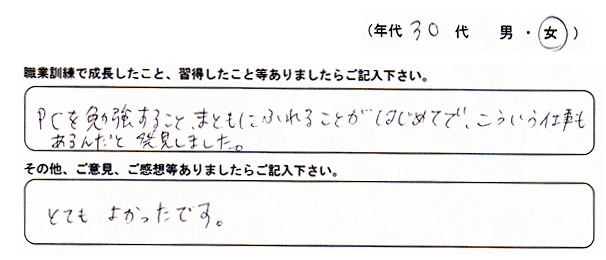 (年代 30 代 男・女)
職業訓練で成長したこと、習得したこと等ありましたらご記入下さい。
PCを勉強すること、まともにふれることがはじめてで、こういう仕事も
あるんだと発見しました。
その他、ご意見、ご感想等ありましたらご記入下さい。
とてもよかったです。